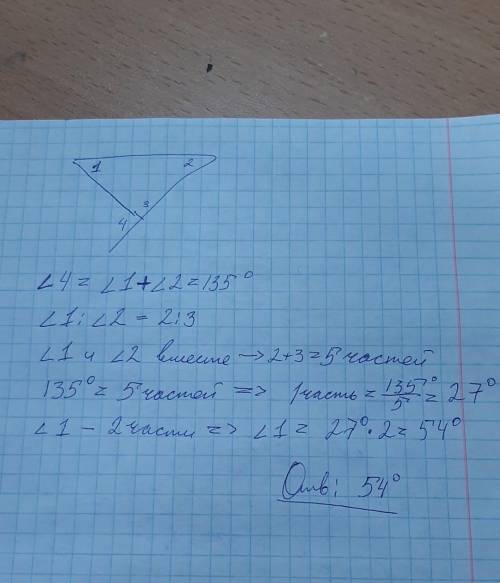 1 2
3
4
∠4 = ∠1+∠2 = 135°
∠1 : ∠2 = 2:3
∠1 и ∠2 вместе → 2+3=5 частей
135° = 5 частей => 1 часть = 135°/5 = 27°
∠1 – 2 части => ∠1 = 27°·2 = 54°
Отв: 54°